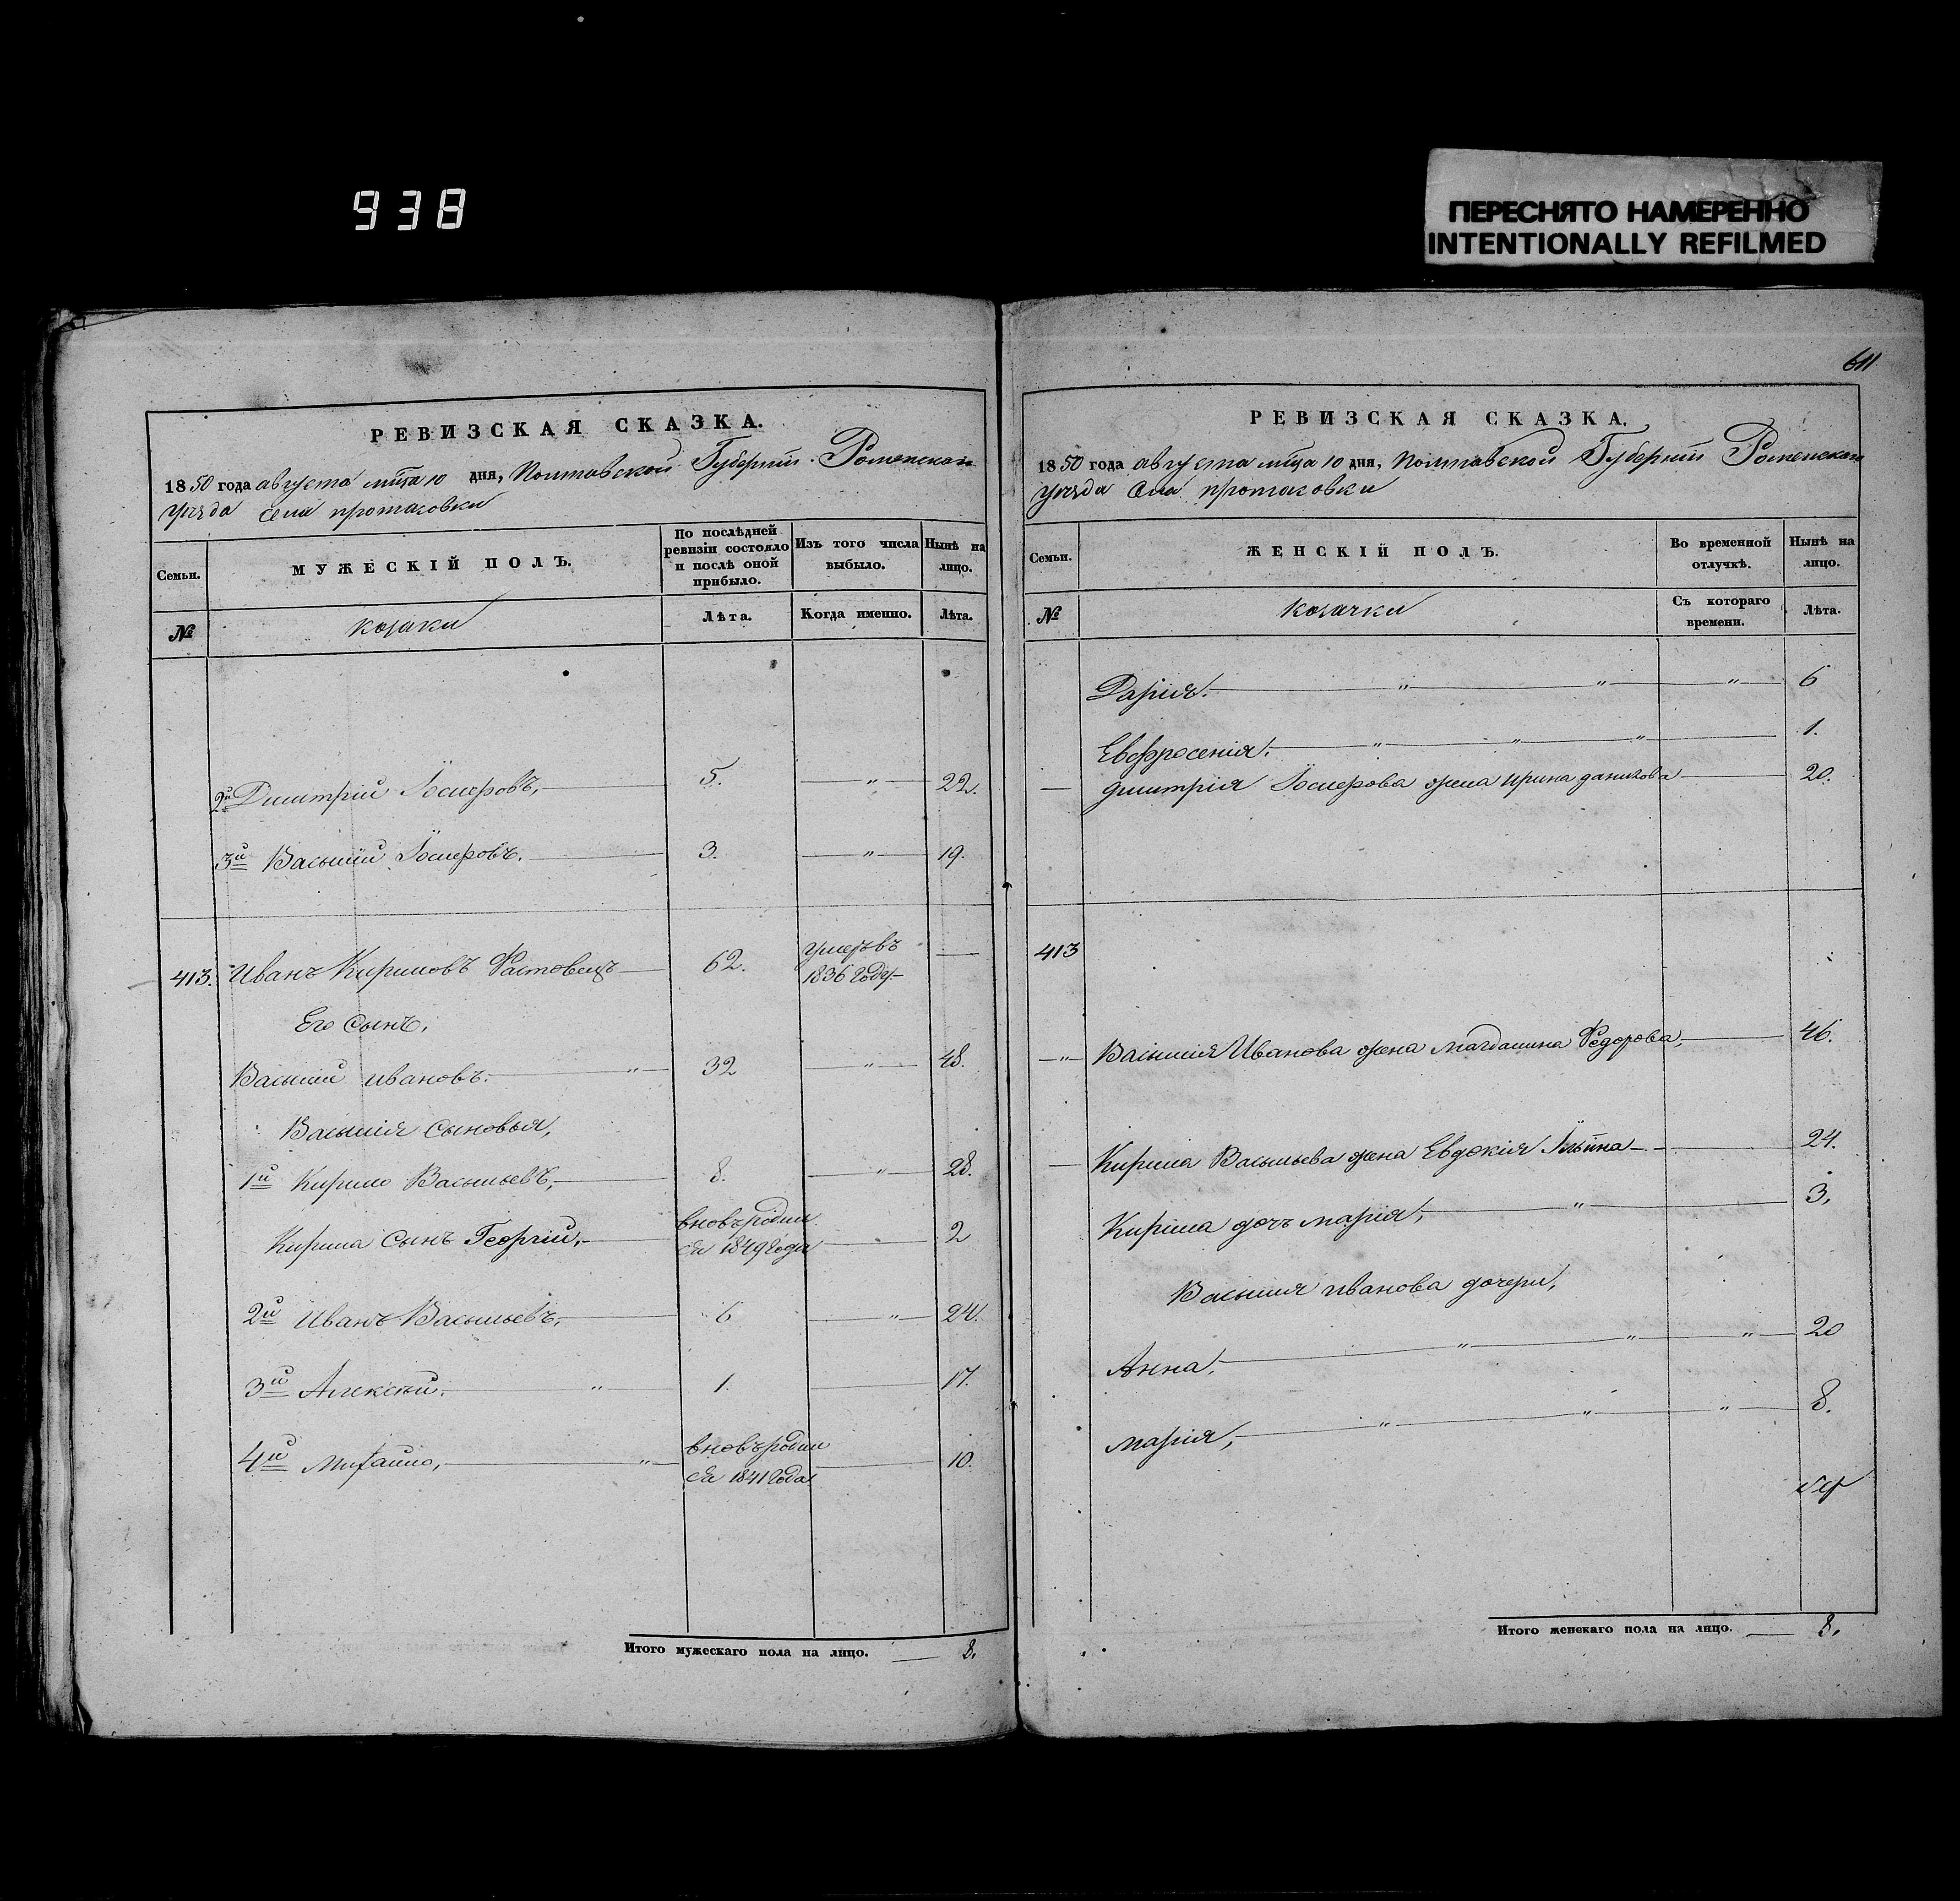 938
ПЕРЕСНЯТО НАМЕРЕННО
INTENTIONALLY REFILMED
РЕВИЗСКАЯ СКАЗКА.
1850 года августа мца 10 дня, Полтавской Губернии Роменскаго
уѣзда села протасовки
Семьи.
МУЖЕСКІЙ ПОЛЪ.
По послѣдней
ревизіи состояло
и послѣ оной
прибыло.
Изъ того числа
выбыло.
Нынѣ на
лицо.
№
козаки
Лѣта.
Когда именно.
Лѣта.
2й Димитрій Іосифовъ, 5. " 22.
3й Василій Іосифовъ. 3. " 19.
413. Иванъ Кириловъ Фастовецъ 62. умеръ въ
1836 году
Его сынъ,
Василій ивановъ. " 32 " 48.
Василія сыновья,
1й Кирило Васильевъ, 8. " 28.
Кирила сынъ Георгій, вновь родил
ся 1849 года 2
2й Иванъ Васильевъ, 6 " 24.
3й Алексѣй. " 1. 17.
4й Михайло, " вновь родил
ся 1841 года 10.
Итого мужескаго пола на лицо. 8.
611
РЕВИЗСКАЯ СКАЗКА.
1850 года августа мца 10 дня, Полтавской Губернии Роменскаго
уѣзда села протасовки
Семьи.
ЖЕНСКІЙ ПОЛЪ.
Во временной
отлучкѣ.
Нынѣ на
лицо.
№
козачки
Съ котораго
времени.
Лѣта.
Дарія. " " " 6
Евфросенія. " " " 1.
димитрія Іосифова жена ирина данилова 20.
413
" Василія Иванова жена магдалина Федорова, 46.
Кирила Васильева жена Евдокія Ильина 24.
Кирила дочь марія, " 3.
Василия иванова дочери,
Анна. " " " 20
марія, " " " 8.
Итого женскаго пола на лицо. 8.